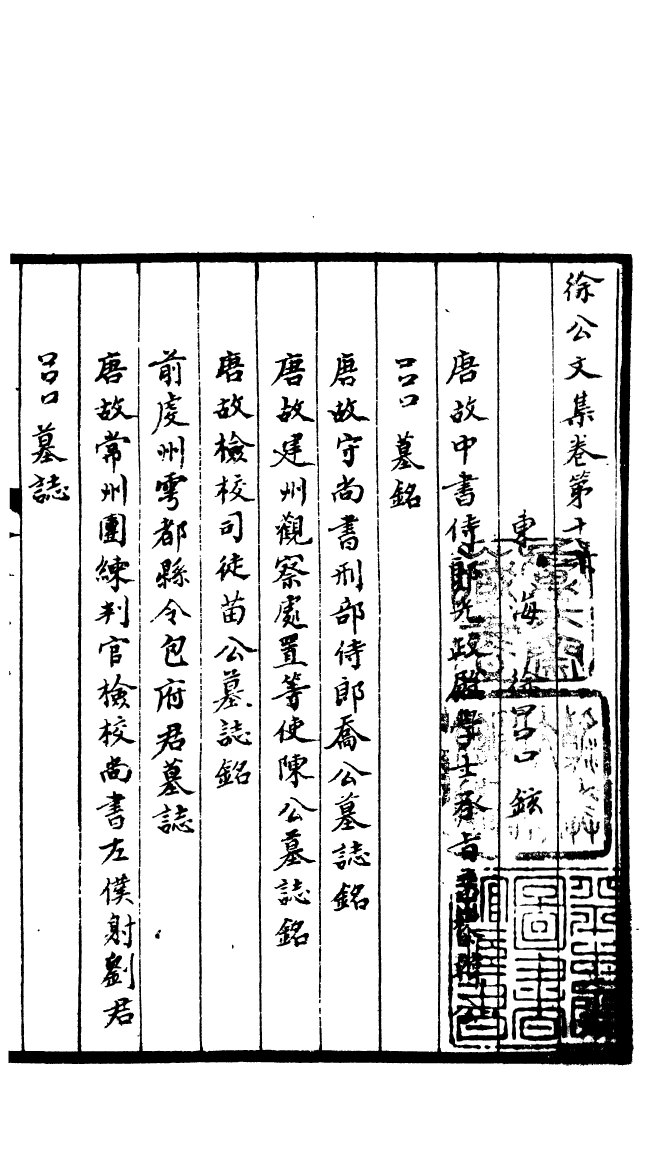 徐公文集卷第十
東海 徐吕口鉉
唐故中書侍郎光政殿學士承旨昌黎韓公
吕口墓銘
唐故守尚書刑部侍郎喬公墓誌銘
唐故建州觀察處置等使陳公墓誌銘
唐故檢校司徒苗公墓誌銘
前虔州雩都縣令包府君墓誌
唐故常州團練判官檢校尚書左僕射劉君
吕口墓誌